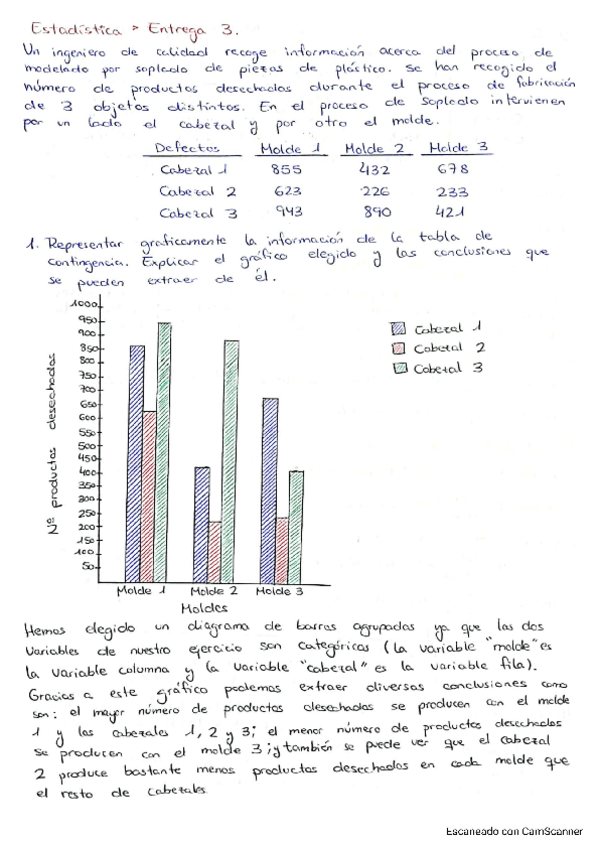 Estadística > Entrega 3.
Un ingeniero de calidad recoge información acerca del proceso de
modelado por soplado de piezas de plástico. Se han recogido el
número de productos desechados durante el proceso de fabricación
de 3 objetos distintos. En el proceso de soplado intervienen
por un lado el cabezal y por otro el molde.
Defectos Molde 1 Molde 2 Molde 3
Cabezal 1 855 432 678
Cabezal 2 623 226 233
Cabezal 3 943 890 421
1. Representar graficamente la información de la tabla de
contingencia. Explicar el gráfico elegido y las conclusiones que
se pueden extraer de él.
1000
950
900
850
800
750
700
650
600
550
500
450
400
350
300
250
200
150
100
50
Nº productos desechados
Cabezal 1
Cabezal 2
Cabezal 3
Molde 1 Molde 2 Molde 3
Moldes
Hemos elegido un diagrama de barras agrupadas ya que las dos
variables de nuestro ejercicio son categóricas (la variable "molde" es
la variable columna y la variable "cabezal" es la variable fila).
Gracias a este gráfico podemos extraer diversas conclusiones como
son: el mayor número de productos desechados se producen con el molde
1 y los cabezales 1, 2 y 3; el menor número de productos desechados
se producen con el molde 3; y también se puede ver que el cabezal
2 produce bastante menos productos desechados en cada molde que
el resto de cabezales
Escaneado con CamScanner